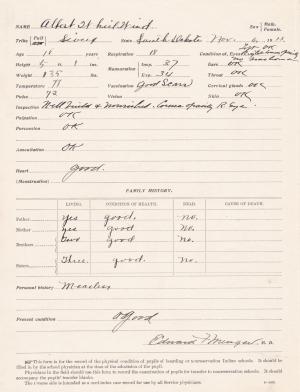 NAME Albert H. Sex— Male. Female.
Tribe { Full Sioux South Dakota Nov. 19
Age 18 years Respiration 18 Condition of, Eyes
Height 5 ft 1 ins Mensuration Insp. 37 Ears OK
Weight 135 lbs. Exp. 34 Throat OK
Temperature Vaccination Good Scars Cervical glands OK
Pulse 72 Vision Skin OK
Inspection Well Build & Nourished. Cornea opacity R Eye.
Palpation OK
Percussion OK
Auscultation OK
Heart good.
(Menstruation)
FAMILY HISTORY.
LIVING. CONDITION OF HEALTH. DEAD. CAUSE OF DEATH.
Father yes good. no.
Mother yes good no.
Brothers Two good No.
Sisters Three. good. no.
Personal history Measles
Present condition Good
Edward F M.D.
NOTE—This form is for the record of the physical condition of pupils of boarding or nonreservation Indian schools. It should be filled in by the school physician at the date of the admission of the pupil.
Physicians in the field should use this form to record the examination of pupils for transfer to nonreservation schools. It should accompany the pupils' transfer blanks.